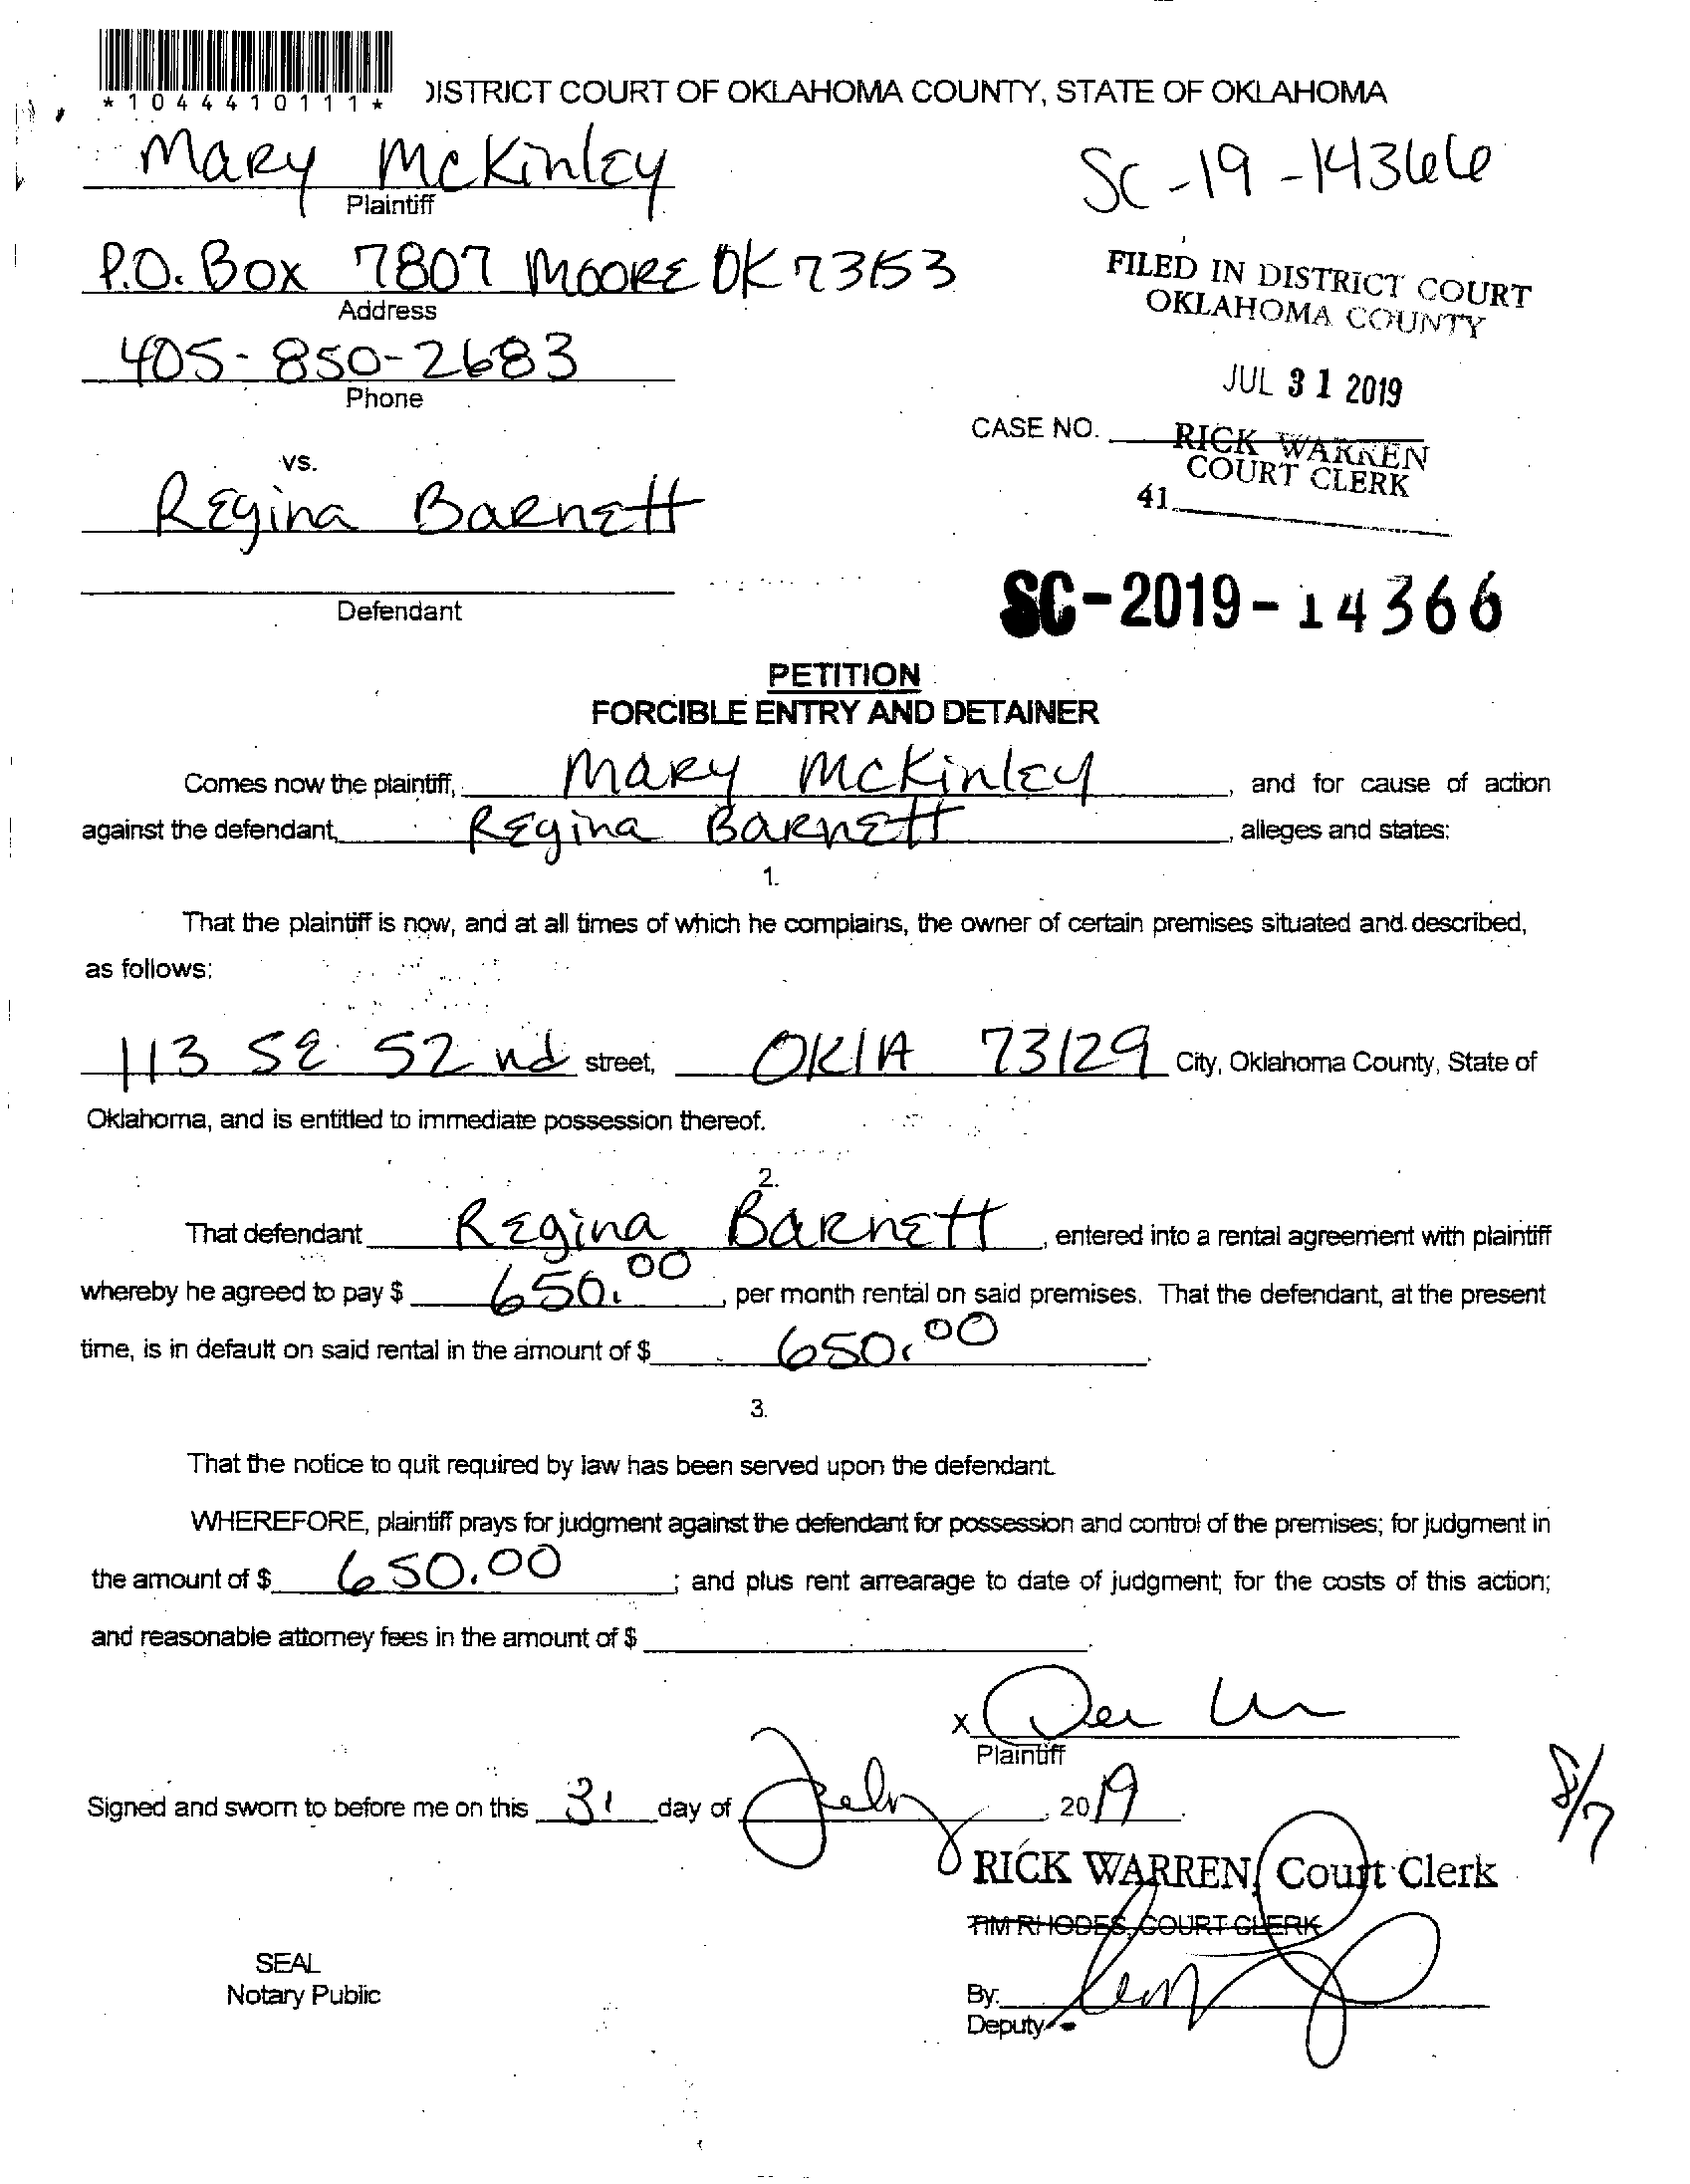 *1044410111*
DISTRICT COURT OF OKLAHOMA COUNTY, STATE OF OKLAHOMA
Mary McKinley
SC-19-14366
Plaintiff
P.O. Box 7807 Moore OK 73153
Address
FILED IN DISTRICT COURT
OKLAHOMA COUNTY
405-850-2683
Phone
JUL 31 2019
CASE NO.
RICK WARREN
COURT CLERK
41
vs.
Regina Barnett
Defendant
SC-2019-14366
PETITION
FORCIBLE ENTRY AND DETAINER
Comes now the plaintiff, Mary McKinley, and for cause of action
against the defendant, Regina Barnett, alleges and states:
1.
That the plaintiff is now, and at all times of which he complains, the owner of certain premises situated and described,
as follows:
113 SE 52nd street, OKlA 73129 City, Oklahoma County, State of
Oklahoma, and is entitled to immediate possession thereof.
2.
That defendant Regina Barnett, entered into a rental agreement with plaintiff
whereby he agreed to pay $ 650.00, per month rental on said premises. That the defendant, at the present
time, is in default on said rental in the amount of $ 650.00.
3.
That the notice to quit required by law has been served upon the defendant.
WHEREFORE, plaintiff prays for judgment against the defendant for possession and control of the premises; for judgment in
the amount of $ 650.00; and plus rent arrearage to date of judgment; for the costs of this action;
and reasonable attorney fees in the amount of $ .
x
Plaintiff
8/7
Signed and sworn to before me on this 31 day of July, 2019.
RICK WARREN, Court Clerk
TIM RHODES, COURT CLERK
SEAL
Notary Public
By:
Deputy